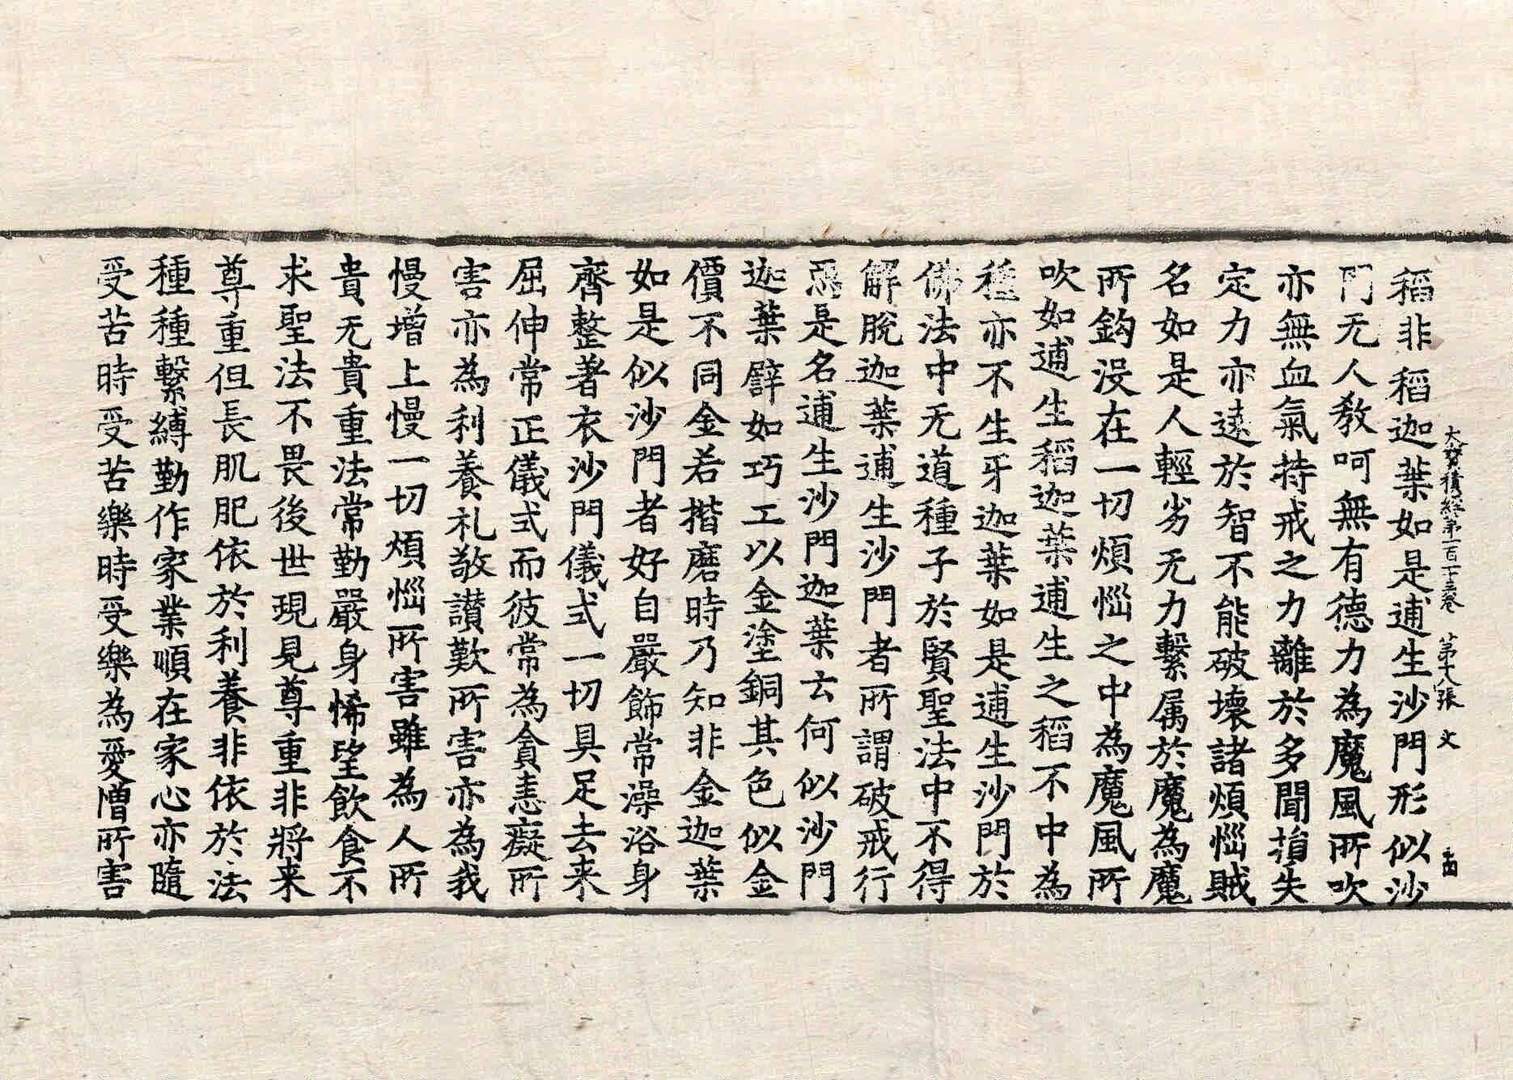 稻非稻迦葉如是逋生沙門形似沙
大寶積經第一百一十三卷 第十八張 文
門无人教呵無有德力為魔風所吹
亦無血氣持戒之力離於多聞損失
定力亦遠於智不能破壞諸煩惱賊
名如是人輕劣无力繫属於魔為魔
所鈎没在一切煩惱之中為魔風所
吹如逋生稻迦葉逋生之稻不中為
種亦不生牙迦葉如是逋生沙門於
佛法中无道種子於賢聖法中不得
解脫迦葉逋生沙門者所謂破戒行
惡是名逋生沙門迦葉云何似沙門
迦葉譬如巧工以金塗銅其色似金
價不同金若揩磨時乃知非金迦葉
如是似沙門者好自嚴飾常澡浴身
齊整著衣沙門儀式一切具足去来
屈伸常正儀式而彼常為貪恚癡所
害亦為利養礼敬讚歎所害亦為我
慢增上慢一切煩惱所害雖為人所
貴无貴重法常勤嚴身悕望飲食不
求聖法不畏後世現見尊重非將来
尊重但長肌肥依於利養非依於法
種種繫縛勤作家業順在家心亦隨
受苦時受苦樂時受樂為愛憎所害